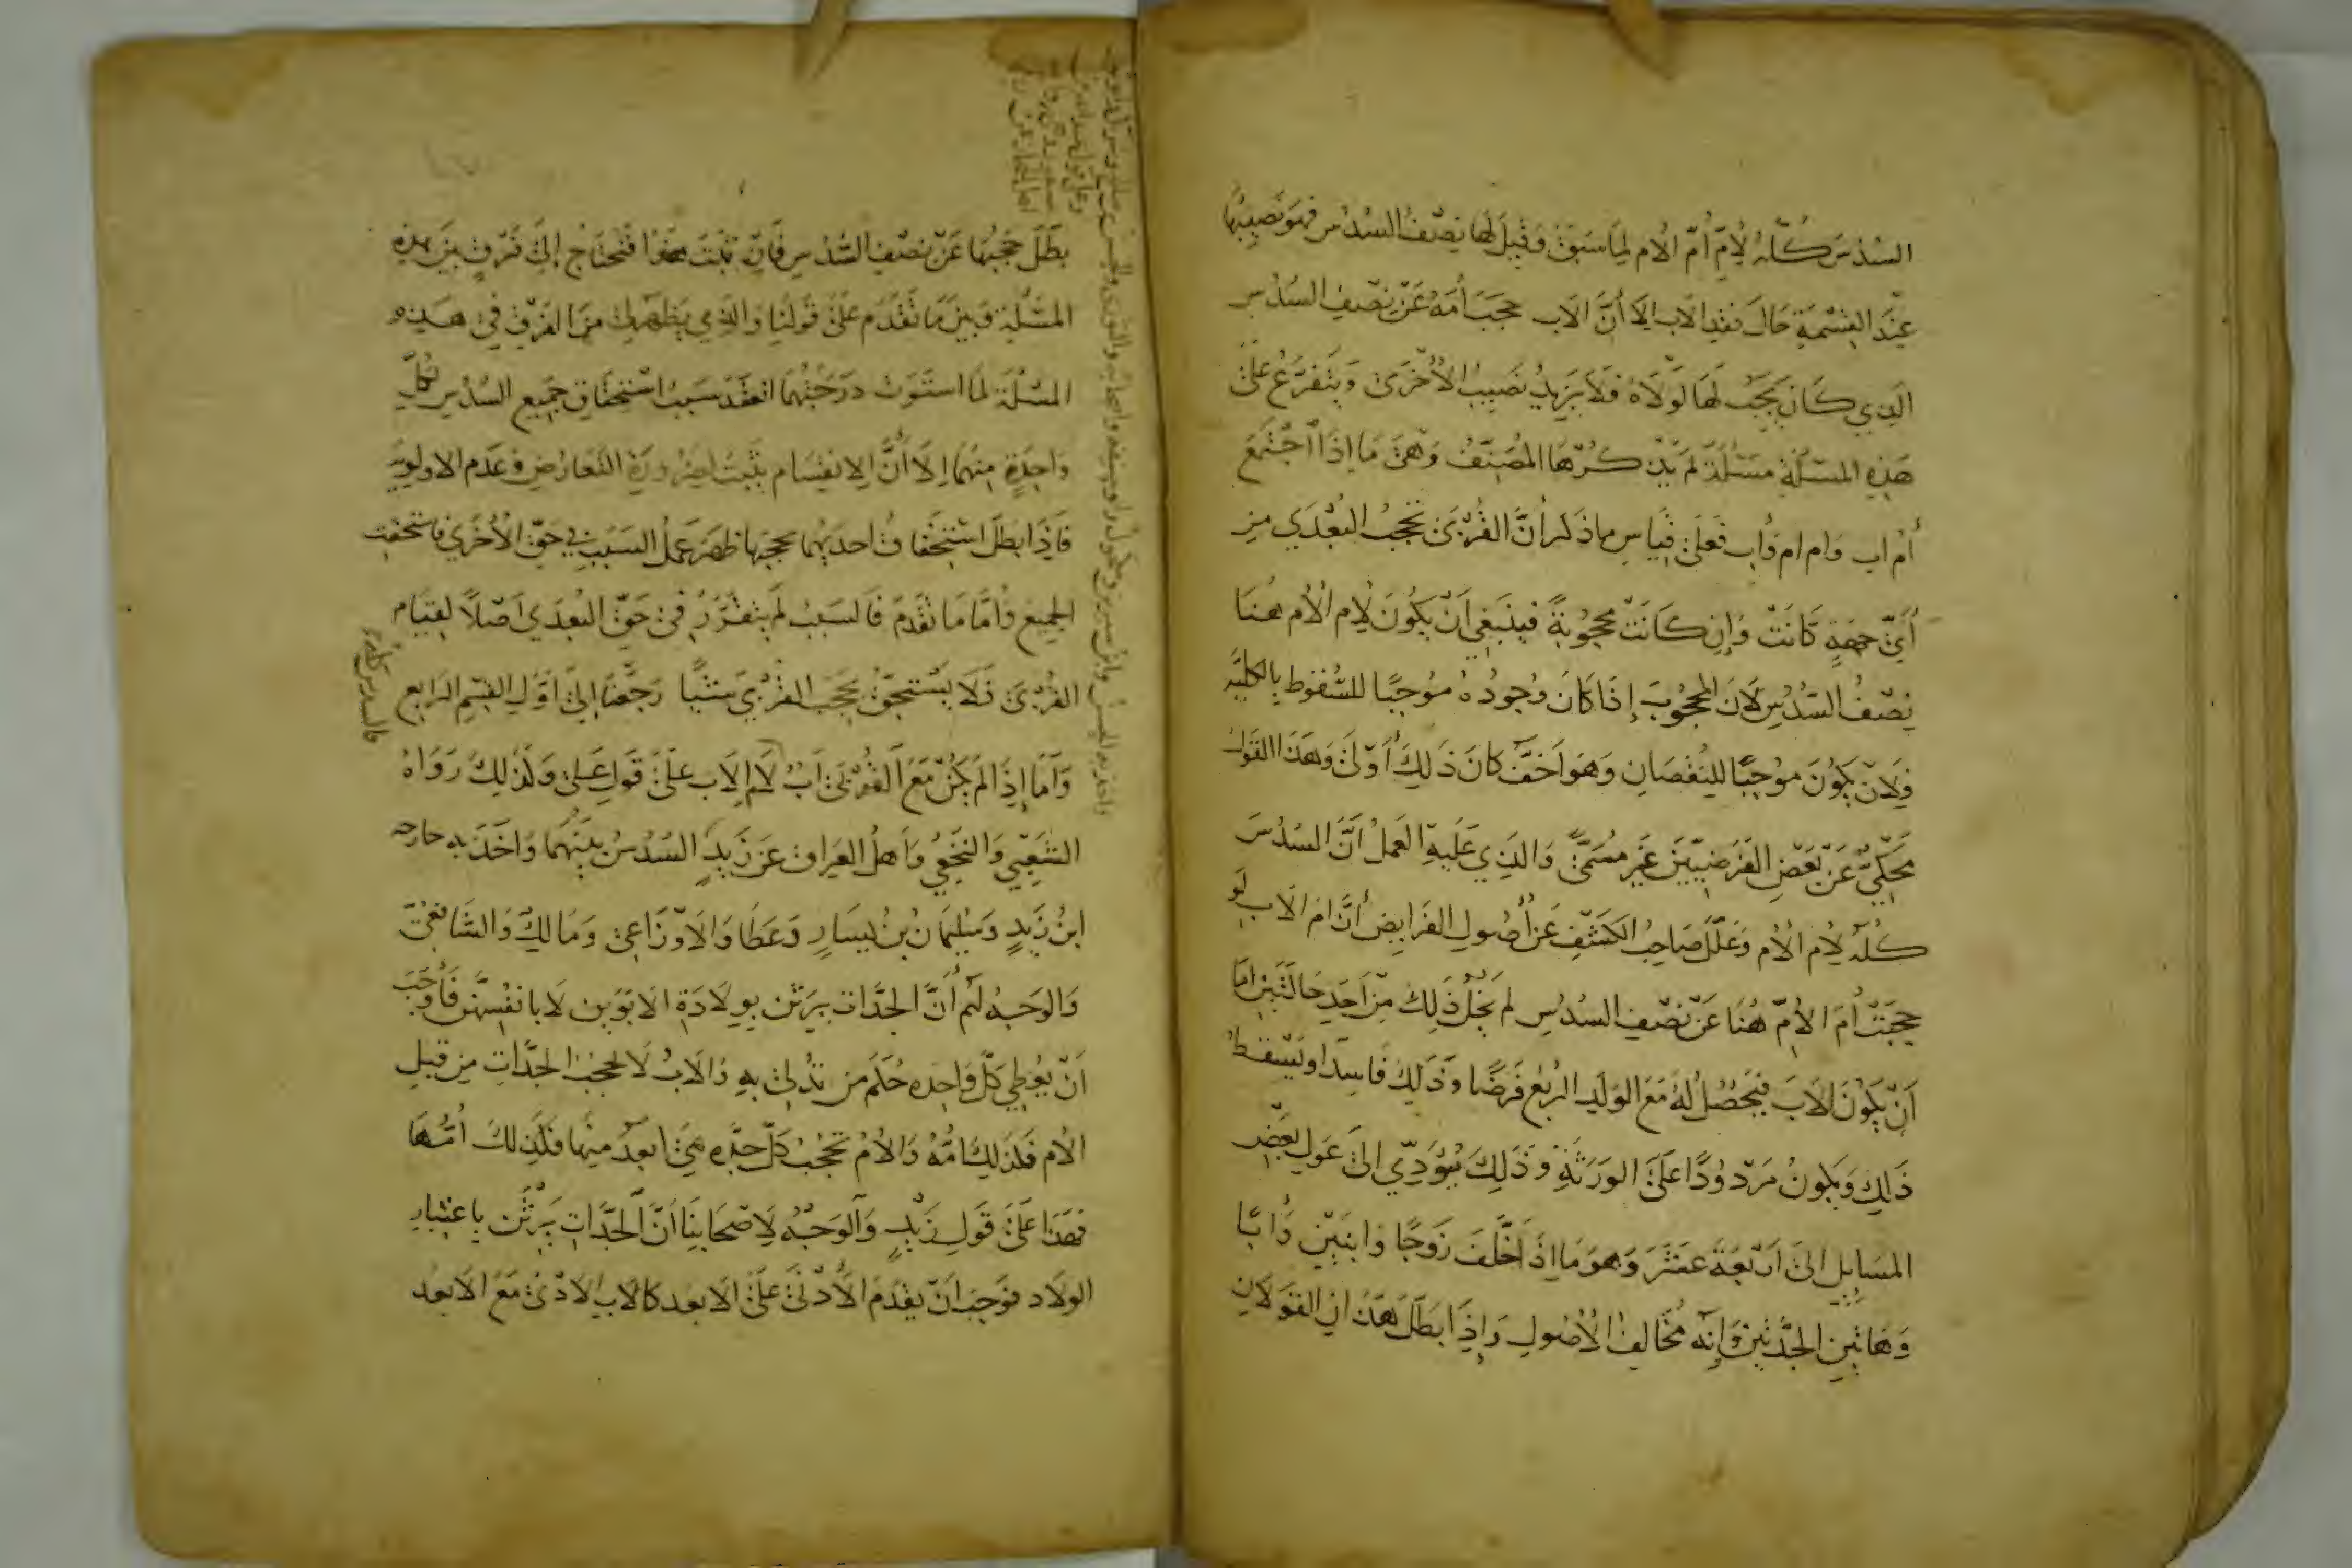 السُدْسَ كُلَّهُ لِأُمِّ أُمّ الأم لِمَا سَبَقَ وَقِيلَ لَها نِصْفُ السُدُس فهو نَصِيبُها
عِنْدَ القِسْمَةِ حَالَ فقدِ الأب إلَّا أنَّ الأب حجَبَ أُمّهُ عَنْ نِصْفِ السُدُسِ
الَّذِي كَانَ يَجِبُ لَهَا لَوْلَاهُ فَلَا يَزِيدُ نصيبُ الأُخْرَى وَيَتَفَرَّعُ عَلَى
هَذِهِ المسئلة مَسْئلَةٌ لَمْ يَذْكُرْهَا المُصَنِّفُ وَهِىَ مَا إذَا اجْتَمَعَ
أُمّ اب وَام ام وَأب فَعَلَى قِيَاسِ ما ذكر أنَّ القُرْبَى تحجبُ البُعْدَى مِن
أَىِّ جِهَةٍ كَانَتْ وَإِن كَانَتْ محجُوبَةً فينبَغِي أَنْ يَكُونَ لِأُم الأُم هُنَا
نِصْفُ السُّدُسِ لأنَ المحجُوبَ إِذَا كَانَ وُجودُهُ مُوجِبًا للسُّقُوطِ بِالكليَّةِ
فَلِأَنْ يَكُونَ مُوجِبًا للنُقْصَانِ وَهوَ أَخَفُّ كانَ ذَلِكَ أَوْلَى وَهَذَا القَوْلُ
مَحْكِيٌّ عَنْ بَعْضِ الفَرَضِيِّينَ غيرَ مُسَمًّى وَالذِي عَلَيهِ العَمَلُ أنَّ السُدُسَ
كُلّهُ لِأم الأُم وَعَلَّلَ صَاحِبُ الكَشْفِ عَنْ أُصُولِ الفَرَايضِ أنَّ ام الأب لَو
حجبَتْ أُمَ الأُمِّ هُنَا عَنْ نصْفِ السدُسِ لم يَخْلُ ذَلِكَ مِنْ أحَدِ حَالَتَيْنِ إمَّا
أنْ يَكُونَ لِلأَبَ فيَحْصُلُ لَهُ مَعَ الوَلَدِ الربُعُ فَرْضًا وَذَلِكَ فَاسِدٌ او يَسْقط
ذَلِكَ وَيكونُ مَرْدُودًا عَلَى الوَرَثَةِ وَذَلِكَ يُؤَدِّي إلى عَوْلِ بَعْضِ
المسَايِلِ إلى أَرْبعَةَ عشَرَ وَهوَ مَا إذَا خَلَّفَ زَوجًا وَابنتَيْنِ وَأَبًا
وَهَاتَيْنِ الجَدَّتَيْنِ وَإنّه مُخَالِفُ الأُصُولِ وَإِذَا بَطَلَ هَذَانِ القَوْلَانِ
بَطَلَ حَجْبُهَا عَنْ نِصْفِ السُّدُسِ فَإنْ ثَبَتَ هَذَا فَنحتَاجُ إلَى فَرْقٍ بَيْنَ هَذِهِ
المسْئلةِ وَبينَ مَا تَقَدَّمَ عَلَى قَولِنَا وَالذِي يَظْهَرُ لِي مِنَ الفَرْقِ فِي هَذِهِ
المسْئلَة لَمَّا استَوَتْ دَرَجَتُهُمَا انْعَقَدَ سَبَبُ اسْتِحقَاقِ جَمِيعِ السُدْسِ لِكُلِّ
وَاحِدَةٍ مِنهُمَا إلَّا أَنَّ الانقِسَام يَثْبُتُ لِضَرُورَةِ التّعارُضِ وَعَدَم الاولويَّةِ
فَإِذَا بَطَلَ اسْتِحقَاقُ احديهُمَا بحجبِهَا ظهَرَ عَمَلُ السَبَبِ في حَقّ الأُخْرَى فاستحقت
الجمِيعَ وَأَمَّا مَا تقَدَّمَ فَالسَبَبُ لَمْ يتقَرَّرْ فِي حَقِّ البُعْدَى أَصْلًا لِقِيَامِ
القُرْبَى فَلَا يَسْتَحِقُّ بحَجْبِ القُرْبَى شَيْئًا رَجَعْنَا إلَى أَوَّلِ القِسْمِ الرَّابِع
وَأَمَّا إِذَا لَمْ يَكُنْ مَعَ القُرْبَى أَبٌ لأم الأب عَلَى قَوْلِ عَلى وَكَذلِكَ رَوَاهُ
الشَعْبِيّ وَالنخَعِي وَأَهلُ العِرَاق عَنْ زَيْدٍ السُدُسُ بينَهُمَا وَأخَذَ بِهِ خارجه
ابنُ زَيْدٍ وَسُلَيمَانُ بْنُ يَسَارٍ وَعَطَا وَالأَوْزَاعِي وَمَالِكٌ وَالشَافِعيّ
وَالوَجْهُ لَهُمْ أنَّ الجَدَّاتِ يَرِثْنَ بِوِلَادَةِ الأَبَوَيْنِ لَا بأَنْفُسِهِنَّ فأوجَبَ
أَنْ يُعْطِي كُلَّ وَاحِده حُكْمَ مَن تُدْلِي بِهِ وَالأبُ لَا يحجبُ الجَدَّاتِ مِن قِبَلِ
الأُم فكَذلِكَ أُمُّهُ وَالأُمُ تحجُبُ كُلَّ جدَّه هِيَ ابعدُ مِنها فكَذلكَ اُمُّهَا
فهَذَا عَلَى قَوْلِ زَيدٍ وَالوَجْهُ لأصْحَابِنَا أنَّ الجَدَّاتِ يَرِثْنَ بِاعتِبَارِ
الولَاد فوَجَبَ أنْ يقَدّمَ الأَدْنَى عَلَى الأَبعَدِ كَالأب الأَدْنَى مَعَ الأَبعَدِ